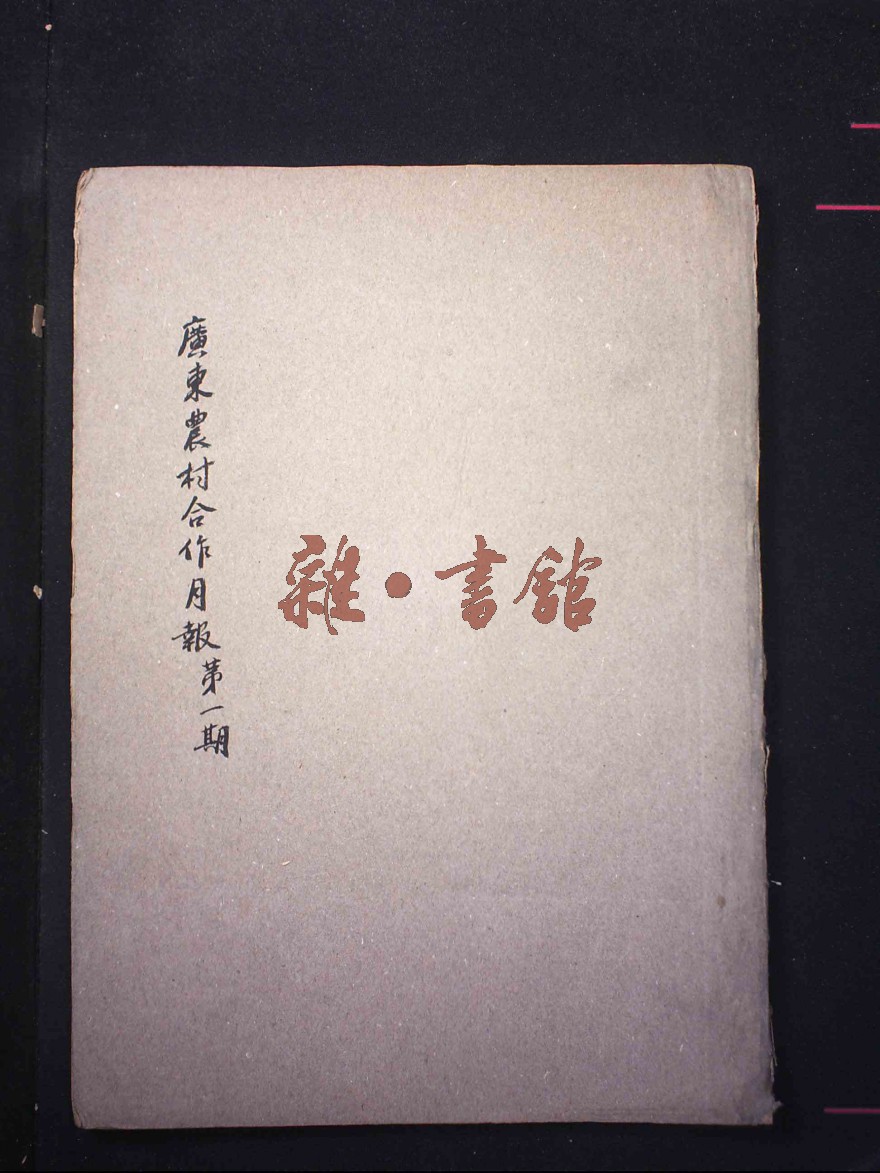 廣東農村合作月報第一期
雜•書館